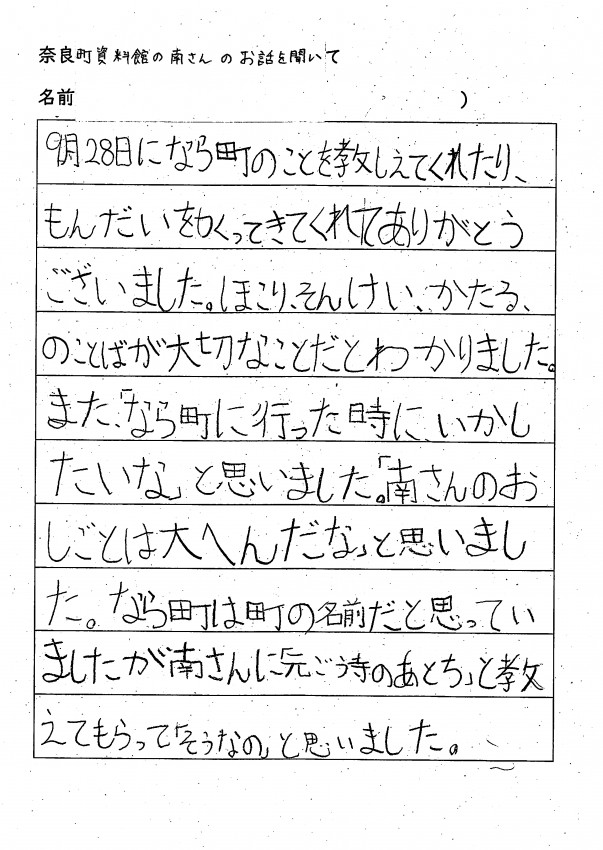 奈良町資料館の南さんのお話を聞いて
名前 )
9月28日になら町のことを教しえてくれたり、
もんだいをつくってきてくれてありがとう
ございました。ほこり、そんけい、かたる、
のことばが大切なことだとわかりました。
また、「なら町に行った時に、いかし
たいな」と思いました。「南さんのお
しごとは大へんだな」と思いまし
た。なら町は町の名前だと思ってい
ましたが南さんに「元ごう寺のあとち」と教
えてもらって「そうなの」と思いました。